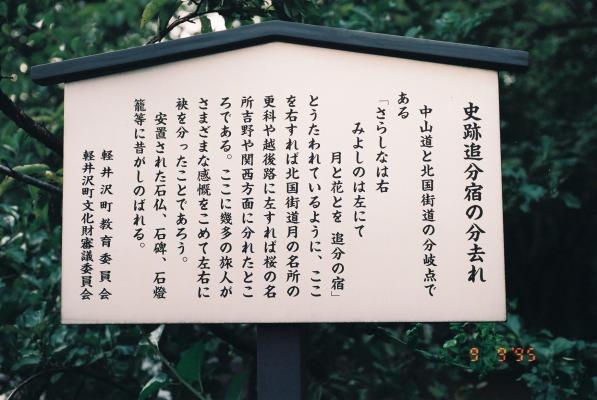 史跡追分宿の分去れ
中山道と北国街道の分岐点で
ある
「さらしなは右
みよしのは左にて
月と花とを 追分の宿」
とうたわれているように、ここ
を右すれば北国街道月の名所の
更科や越後路に左すれば桜の名
所吉野や関西方面に分れたとこ
ろである。ここに幾多の旅人が
さまざまな感慨をこめて左右に
袂を分ったことであろう。
安置された石仏、石碑、石燈
籠等に昔がしのばれる。
軽井沢町教育委員会
軽井沢町文化財審議委員会
9 3 '95